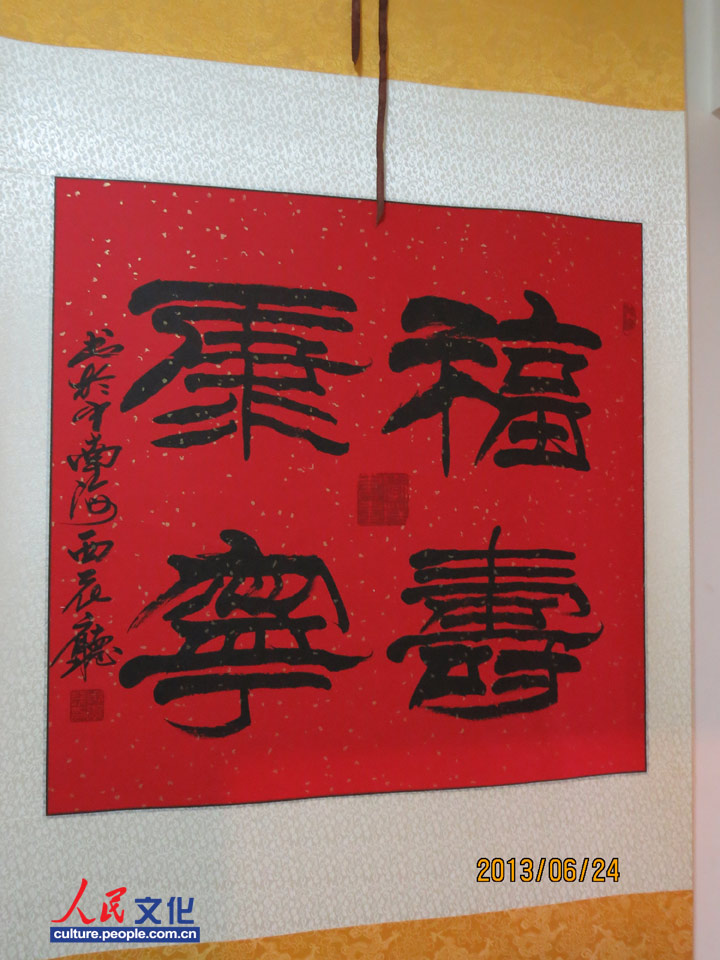 福壽
康寧
书於中南海西花廳
2013/06/24
人民文化
culture.people.com.cn